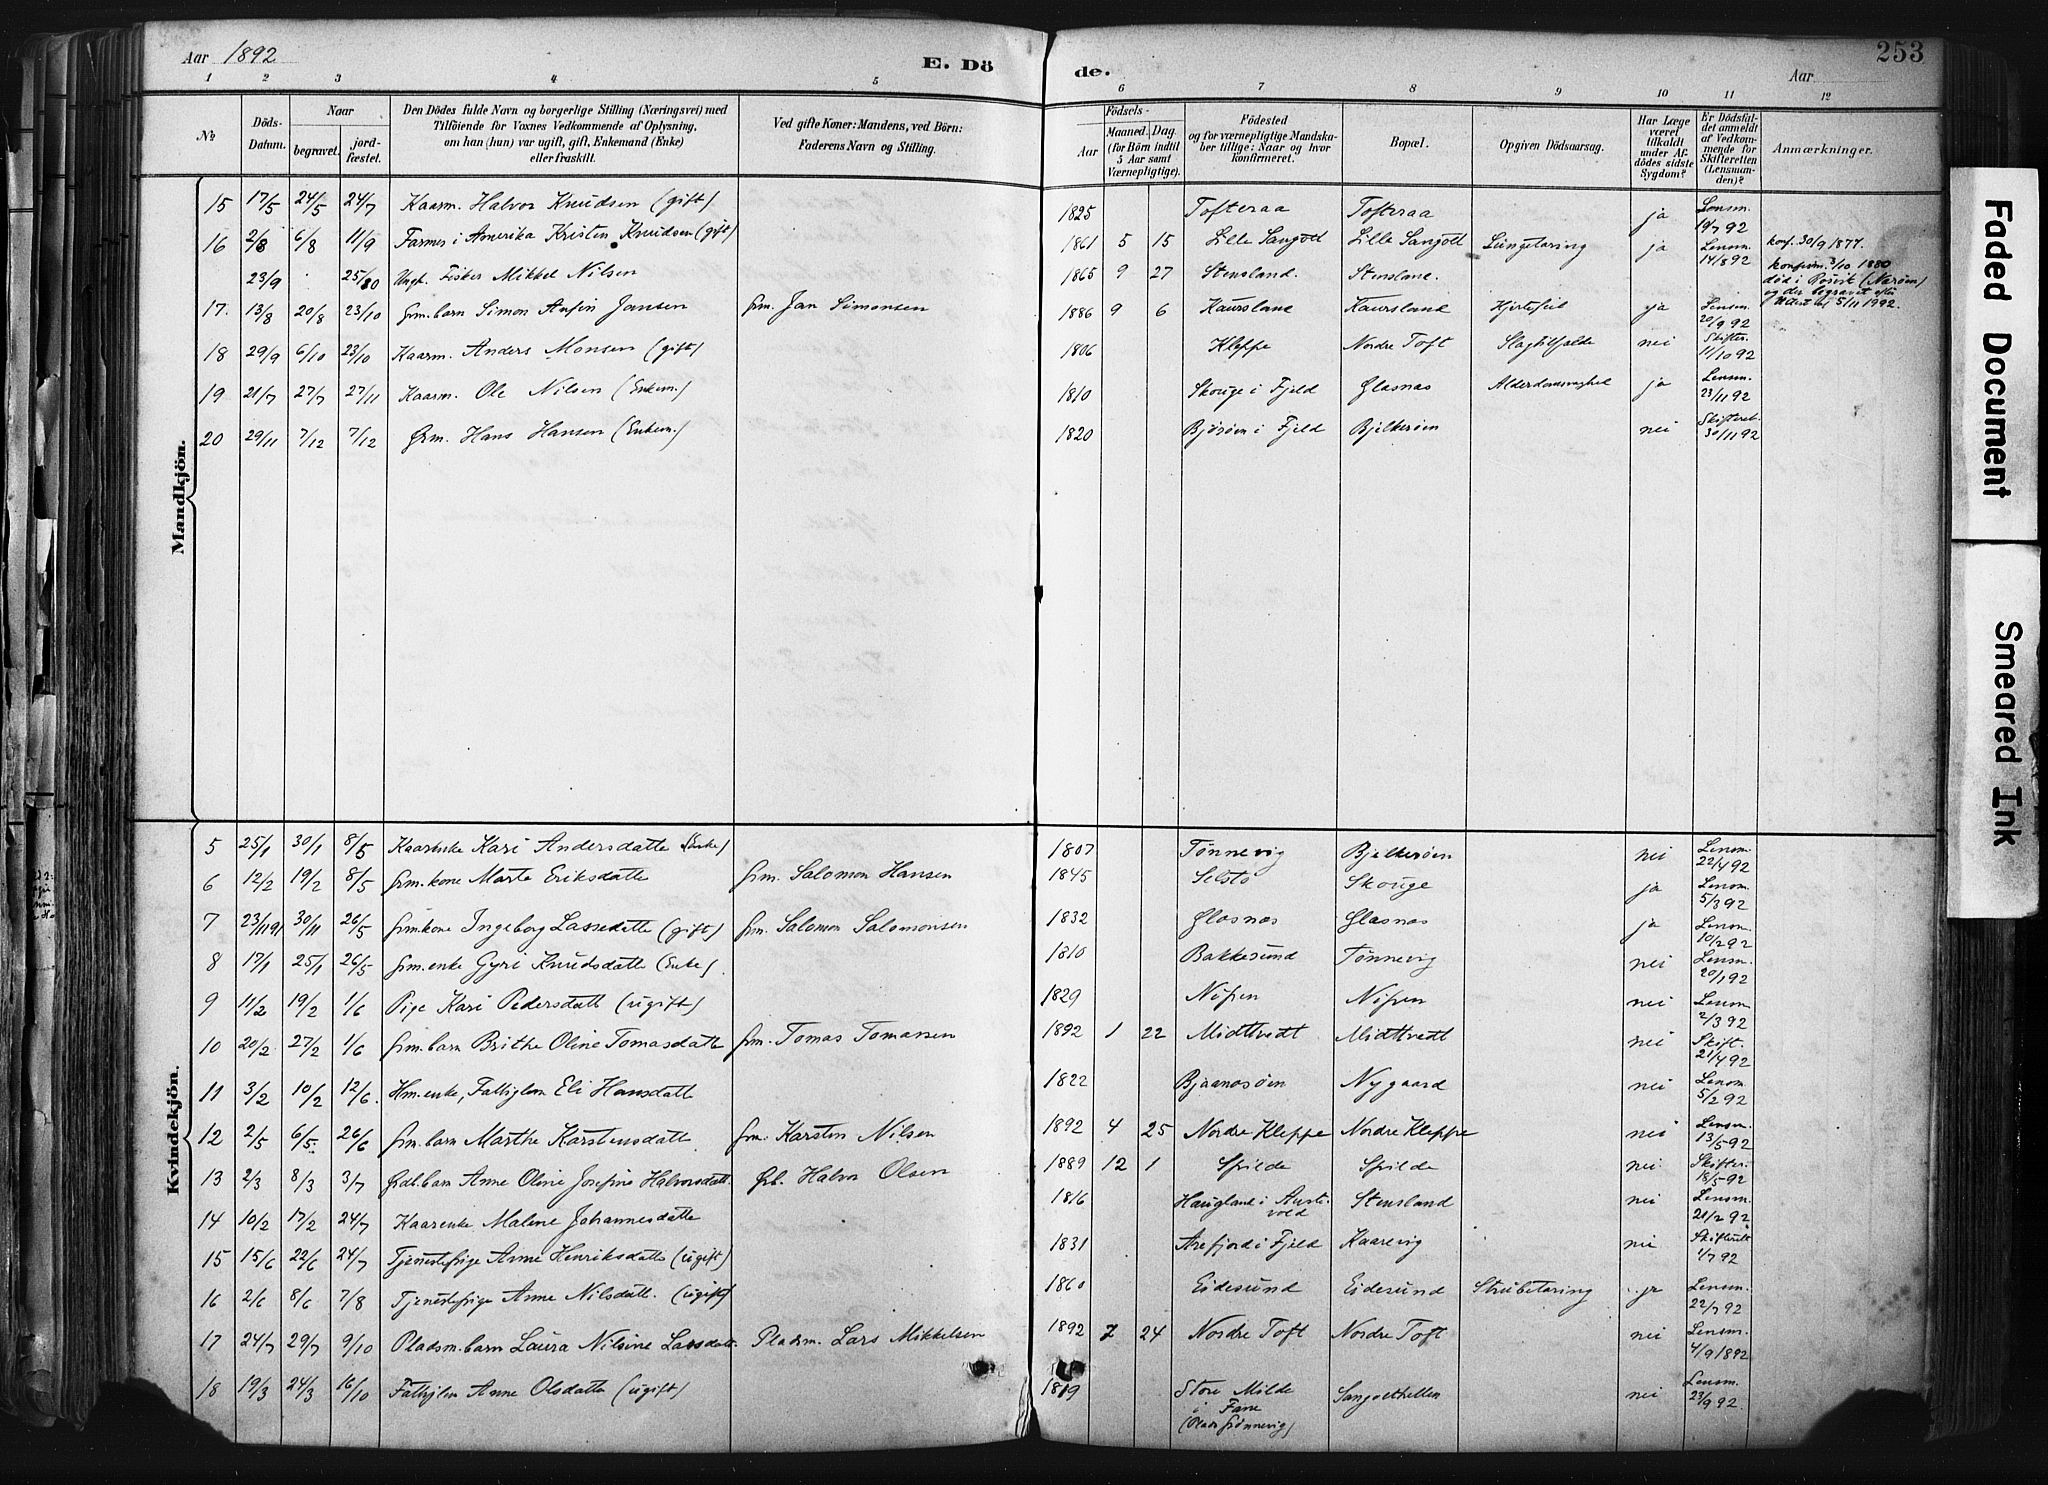 Aar 1892
E. Dö
de.
Aar
253
1 2 3 4 5 6 7 8 9 10 11 12
№
Döds-
Datum.
Naar
begravet.
jord-
fæstet.
Den Dödes fulde Navn og borgerlige Stilling (Næringsvei) med
Tilföiende for Voxnes Vedkommende af Oplysning,
om han (hun) var ugift, gift, Enkemand (Enke)
eller fraskilt.
Ved gifte Koner: Mandens, ved Börn:
Faderens Navn og Stilling.
Födsels-
Aar
Maaned. Dag.
(for Börn indtil
5 Aar samt
Værnepligtige).
Födested
og for værnepligtige Mandska-
ber tillige: Naar og hvor
konfirmeret.
Bopæl.
Opgiven Dödsaarsag.
Har Læge
været
tilkaldt
under Af-
dödes sidste
Sygdom?
Er Dödsfal-
det anmeldt
af Vedkom-
mende for
Skifteretten
(Lensman-
den)?
Anmærkninger.
Mandkjön.
15 17/5 24/5 24/7 Kaarm. Halvor Knudsen (gift) 1825 Tofteraa Tofteraa ja Lensm. 19/7 92
16 2/8 6/8 11/9 Farmer i Amerika Kristen Knudsen (gift) 1861 5 15 Lille Sangolt Lille Sangolt Lungetæring ja Lensm. 14/8 92 konf. 30/9 1877.
23/9 25/10 Ungk. Fisker Mikkel Nilsen 1865 9 27 Stensland. Stensland. konfirm. 3/10 1880
død i (Narøen)
og der begravet efter
5/11 1992.
17. 13/8 20/8 23/10 Grm. barn Simon Anfin Jansen Grm. Jan Simonsen 1886 9 6 Kaursland Kaursland Hjertefeil ja Lensm. 20/9 92
18 29/9 6/10 23/10 Kaarm. Anders Monsen (gift) 1806 Kleppe Nordre Toft Slagtilfælde nei Skifter. 11/10 92
19 21/7 27/7 27/11 Kaarm. Ole Nilsen (Enkem.) 1810 Skouge i Fjeld Glasnæs Alderdomssvaghed ja Lensm. 23/11 92
20 29/11 7/12 7/12 Grm. Hans Hansen (Enkem.) 1820 Bjørøen i Fjeld Bjelkerøen nei Skifteret. 30/11 92
Kvindekjön.
5 25/1 30/1 8/5 Kaarenke Kari Andersdatte (Enke) 1807 Tønnevig Bjelkerøen nei Lensm. 22/4 92
6 12/2 19/2 8/5 Grm.kone Marte Eriksdatte Grm. Salomon Hansen 1845 Selstø Skouge ja Lensm. 5/3 92
7 23/11 91 30/11 26/5 Grm.kone Ingeborg Lassedatte (gift) Grm. Salomon Salomonsen 1832 Glasnæs Glasnæs ja Lensm. 10/2 92
8 17/1 25/1 26/5 Grm.enke Gyri Knudsdatte (Enke). 1810 Bakkesund Tønnevig nei Lensm. 20/1 92
9 11/2 19/2 1/6 Pige Kari Pedersdatt (ugift) 1829 Nipen Nipen nei Lensm. 2/3 92
10 20/2 27/2 1/6 Grm. barn Brithe Oline Tomasdatte Grm. Tomas Tomassen 1892 1 22 Midttvedt Midttvedt nei Skift. 21/4 92
11 3/2 10/2 12/6. Hm. enke, Fattiglem Eli Hansdatt 1822 Bjaanæsøen Nygaard nei Lensm. 5/2 92
12 2/5 6/5. 26/6 Grm. barn Marthe Karstensdatt Grm. Karsten Nilsen 1892 4 25 Nordre Kleppe Nordre Kleppe nei Lensm. 13/5 92
13 2/3 8/3 3/7 Grdb. barn Anne Oline Josefine Halvorsdatt. Grb. Halvor Olsen 1889 12 1 Spilde Spilde nei Skifter. 18/5 92
14 10/2 17/2 24/7 Kaarenke Malene Johannesdatte 1816 Haugland i Austevold Stensland nei Lensm. 21/2 92.
15 15/6 22/6 24/7 Tjenestepige Anne Henriksdatte (ugift) 1831 Arefjord i Fjeld Kaarevig nei Skifterett 1/7 92
16 2/6 8/6 7/8 Tjenestepige Anne Nilsdatt. (ugift) 1860 Eidesund Eidesund Strubetæring ja Lensm. 22/7 92
17 24/7 29/7 9/10 Pladsm. barn Laura Nilsine Larsdatt. Pladsm. Lars Mikkelsen 1892 7 24 Nordre Toft Nordre Toft nei Lensm. 4/9 1892
18 19/3 24/3 16/10 Fattiglem Anne Olsdatte (ugift) 1819 Store Milde
i Fane
(Plads Grønnevig) Sangolthellen nei Lensm. 23/9 92.
Faded Document
Smeared Ink